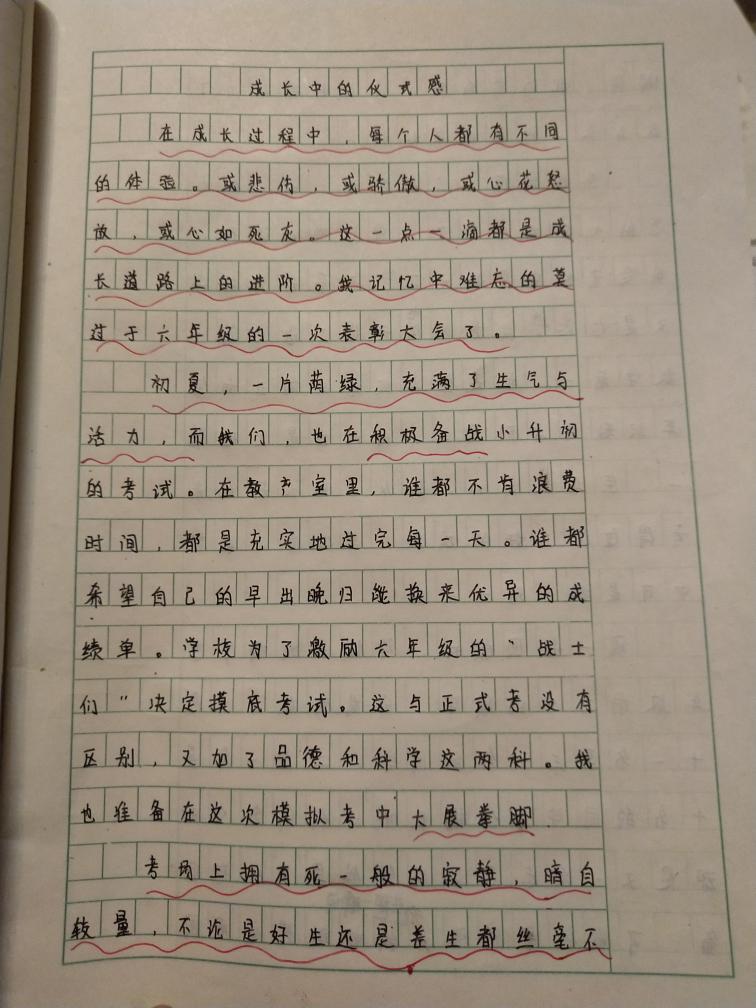 成长中的仪式感
在成长过程中，每个人都有不同
的体验。或悲伤，或骄傲，或心花怒
放，或心如死灰。这一点一滴都是成
长道路上的进阶。我记忆中难忘的莫
过于六年级的一次表彰大会了。
初夏，一片荫绿，充满了生气与
活力，而我们，也在积极备战小升初
的考试。在教室里，谁都不肯浪费
时间，都是充实地过完每一天。谁都
希望自己的早出晚归能换来优异的成
绩单。学校为了激励六年级的“战士
们”决定摸底考试。这与正式考没有
区别，又加了品德和科学这两科。我
也准备在这次模拟考中大展拳脚
考场上拥有死一般的寂静，暗自
较量，不论是好生还是差生都丝毫不